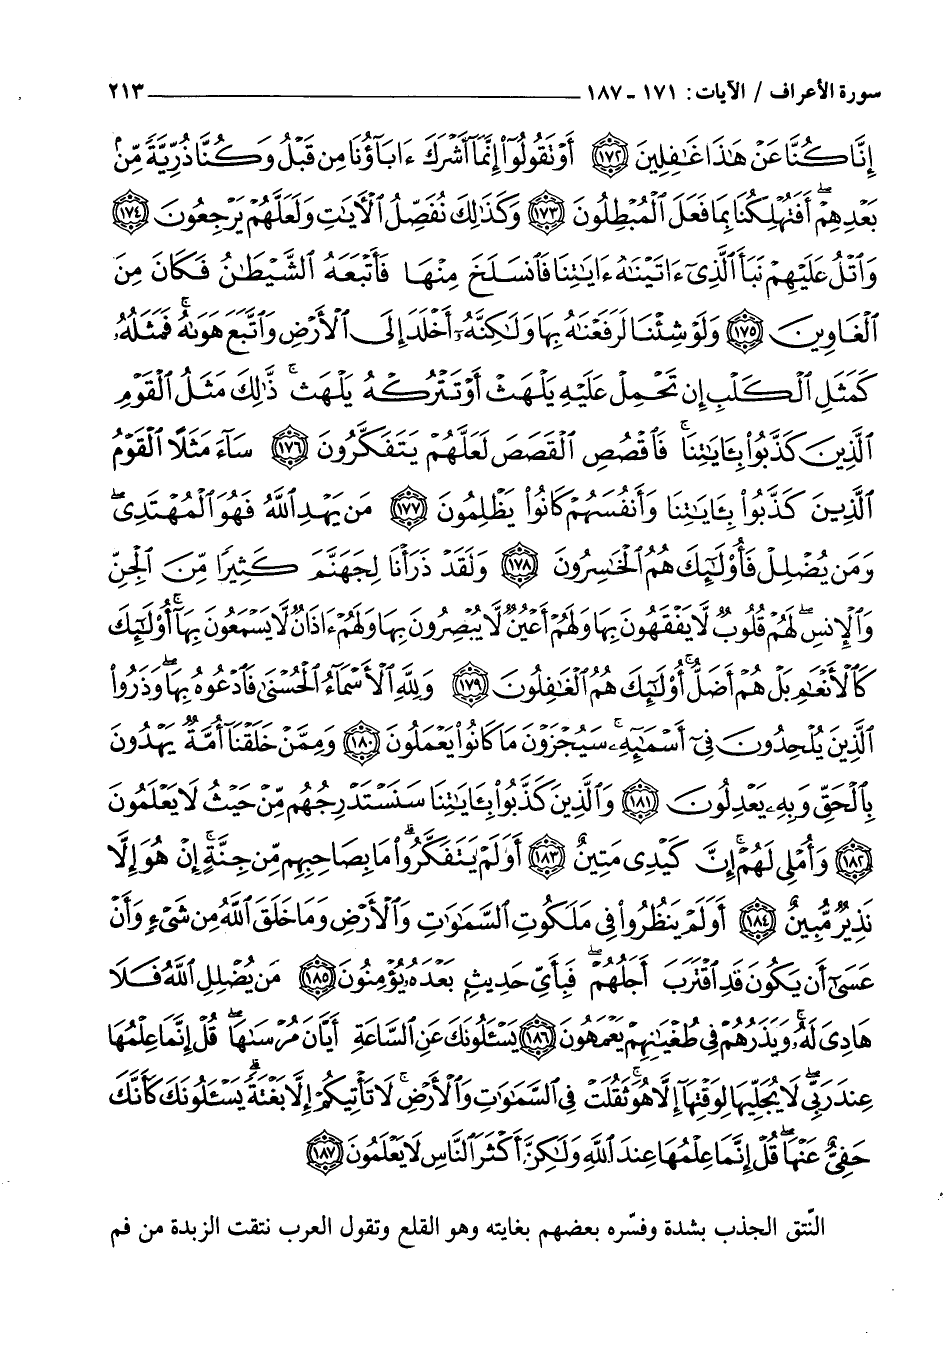 سورة الأعراف / الآيات: ١٧١ - ١٨٧ ٢١٣
إِنَّا كُنَّا عَنْ هَٰذَا غَٰفِلِينَ ﴿١٧٢﴾ أَوْ تَقُولُوٓا۟ إِنَّمَآ أَشْرَكَ ءَابَآؤُنَا مِن قَبْلُ وَكُنَّا ذُرِّيَّةً مِّنۢ
بَعْدِهِمْ ۖ أَفَتُهْلِكُنَا بِمَا فَعَلَ ٱلْمُبْطِلُونَ ﴿١٧٣﴾ وَكَذَٰلِكَ نُفَصِّلُ ٱلْءَايَٰتِ وَلَعَلَّهُمْ يَرْجِعُونَ ﴿١٧٤﴾
وَٱتْلُ عَلَيْهِمْ نَبَأَ ٱلَّذِىٓ ءَاتَيْنَٰهُ ءَايَٰتِنَا فَٱنسَلَخَ مِنْهَا فَأَتْبَعَهُ ٱلشَّيْطَٰنُ فَكَانَ مِنَ
ٱلْغَاوِينَ ﴿١٧٥﴾ وَلَوْ شِئْنَا لَرَفَعْنَٰهُ بِهَا وَلَٰكِنَّهُۥٓ أَخْلَدَ إِلَى ٱلْأَرْضِ وَٱتَّبَعَ هَوَىٰهُ ۚ فَمَثَلُهُۥ
كَمَثَلِ ٱلْكَلْبِ إِن تَحْمِلْ عَلَيْهِ يَلْهَثْ أَوْ تَتْرُكْهُ يَلْهَث ۚ ذَّٰلِكَ مَثَلُ ٱلْقَوْمِ
ٱلَّذِينَ كَذَّبُوا۟ بِـَٔايَٰتِنَا ۚ فَٱقْصُصِ ٱلْقَصَصَ لَعَلَّهُمْ يَتَفَكَّرُونَ ﴿١٧٦﴾ سَآءَ مَثَلًا ٱلْقَوْمُ
ٱلَّذِينَ كَذَّبُوا۟ بِـَٔايَٰتِنَا وَأَنفُسَهُمْ كَانُوا۟ يَظْلِمُونَ ﴿١٧٧﴾ مَن يَهْدِ ٱللَّهُ فَهُوَ ٱلْمُهْتَدِى ۖ
وَمَن يُضْلِلْ فَأُو۟لَٰٓئِكَ هُمُ ٱلْخَٰسِرُونَ ﴿١٧٨﴾ وَلَقَدْ ذَرَأْنَا لِجَهَنَّمَ كَثِيرًا مِّنَ ٱلْجِنِّ
وَٱلْإِنسِ ۖ لَهُمْ قُلُوبٌ لَّا يَفْقَهُونَ بِهَا وَلَهُمْ أَعْيُنٌ لَّا يُبْصِرُونَ بِهَا وَلَهُمْ ءَاذَانٌ لَّا يَسْمَعُونَ بِهَآ ۚ أُو۟لَٰٓئِكَ
كَٱلْأَنْعَٰمِ بَلْ هُمْ أَضَلُّ ۚ أُو۟لَٰٓئِكَ هُمُ ٱلْغَٰفِلُونَ ﴿١٧٩﴾ وَلِلَّهِ ٱلْأَسْمَآءُ ٱلْحُسْنَىٰ فَٱدْعُوهُ بِهَا ۖ وَذَرُوا۟
ٱلَّذِينَ يُلْحِدُونَ فِىٓ أَسْمَٰٓئِهِۦ ۚ سَيُجْزَوْنَ مَا كَانُوا۟ يَعْمَلُونَ ﴿١٨٠﴾ وَمِمَّنْ خَلَقْنَآ أُمَّةٌ يَهْدُونَ
بِٱلْحَقِّ وَبِهِۦ يَعْدِلُونَ ﴿١٨١﴾ وَٱلَّذِينَ كَذَّبُوا۟ بِـَٔايَٰتِنَا سَنَسْتَدْرِجُهُم مِّنْ حَيْثُ لَا يَعْلَمُونَ
﴿١٨٢﴾ وَأُمْلِى لَهُمْ ۚ إِنَّ كَيْدِى مَتِينٌ ﴿١٨٣﴾ أَوَلَمْ يَتَفَكَّرُوا۟ ۗ مَا بِصَاحِبِهِم مِّن جِنَّةٍ ۚ إِنْ هُوَ إِلَّا
نَذِيرٌ مُّبِينٌ ﴿١٨٤﴾ أَوَلَمْ يَنظُرُوا۟ فِى مَلَكُوتِ ٱلسَّمَٰوَٰتِ وَٱلْأَرْضِ وَمَا خَلَقَ ٱللَّهُ مِن شَىْءٍ وَأَنْ
عَسَىٰٓ أَن يَكُونَ قَدِ ٱقْتَرَبَ أَجَلُهُمْ ۖ فَبِأَىِّ حَدِيثٍۭ بَعْدَهُۥ يُؤْمِنُونَ ﴿١٨٥﴾ مَن يُضْلِلِ ٱللَّهُ فَلَا
هَادِىَ لَهُۥ ۚ وَيَذَرُهُمْ فِى طُغْيَٰنِهِمْ يَعْمَهُونَ ﴿١٨٦﴾ يَسْـَٔلُونَكَ عَنِ ٱلسَّاعَةِ أَيَّانَ مُرْسَىٰهَا ۖ قُلْ إِنَّمَا عِلْمُهَا
عِندَ رَبِّى ۖ لَا يُجَلِّيهَا لِوَقْتِهَآ إِلَّا هُوَ ۚ ثَقُلَتْ فِى ٱلسَّمَٰوَٰتِ وَٱلْأَرْضِ ۚ لَا تَأْتِيكُمْ إِلَّا بَغْتَةً ۗ يَسْـَٔلُونَكَ كَأَنَّكَ
حَفِىٌّ عَنْهَا ۖ قُلْ إِنَّمَا عِلْمُهَا عِندَ ٱللَّهِ وَلَٰكِنَّ أَكْثَرَ ٱلنَّاسِ لَا يَعْلَمُونَ ﴿١٨٧﴾
النّتق الجذب بشدة وفسّره بعضهم بغايته وهو القلع وتقول العرب نتقت الزبدة من فم